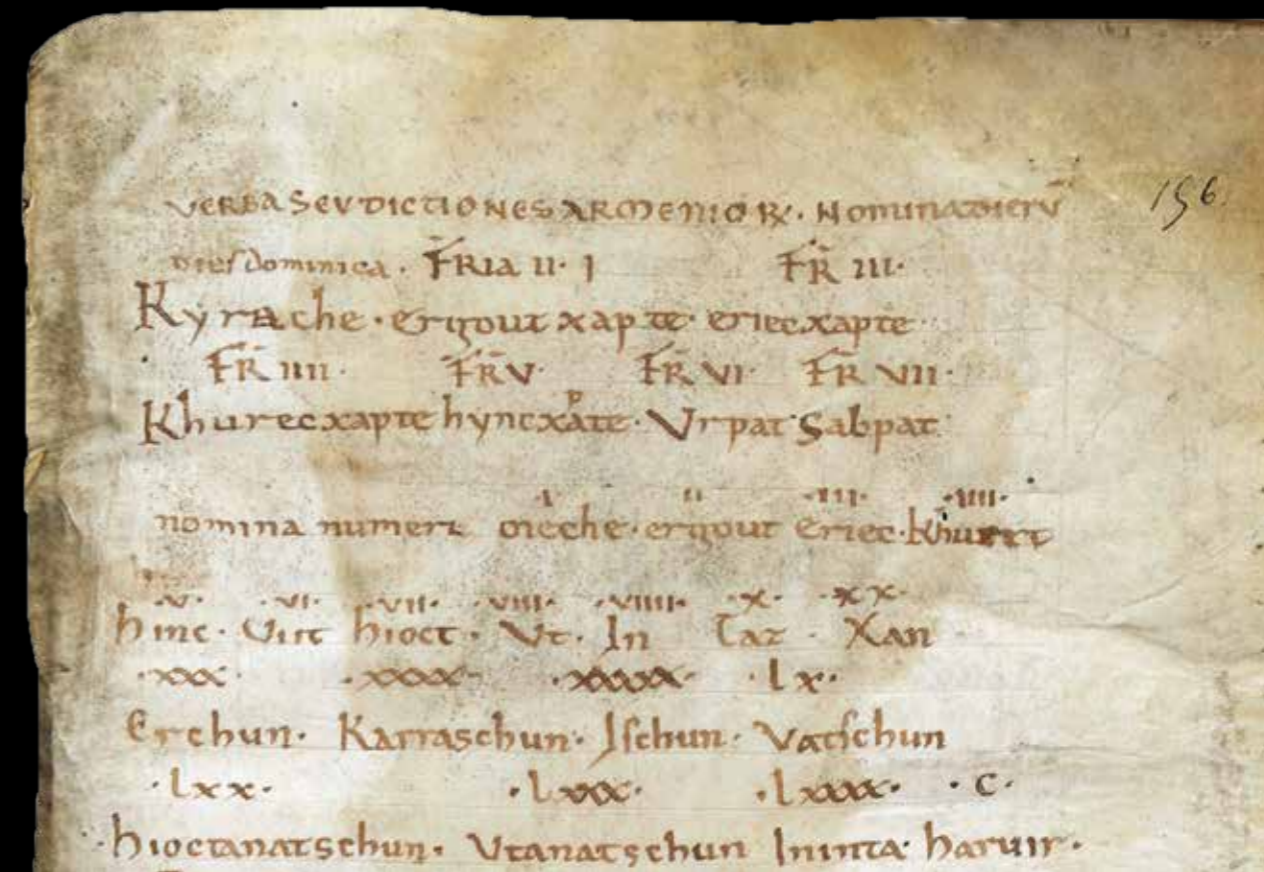 VERBA SEV DICTIONES ARMENIOR. Nomina dierū
156.
dies dominica. FRIA II. FR III.
Kyrache. ergout xapte. eriecxapte
FR IIII. FR V. FR VI. FR VII.
Khurecxapte hyncxapte. Vrpat Sabpat
I II .III. .IIII.
nomina numeri mieche. ergout Eriec. Khurit
.V. .VI. .VII. .VIII. .VIIII. .X. .XX.
hinc. Vist hioct. Vt. In Taz. Xan
.XXX. .XXXX. .XXXXX. .LX.
Erehun. Karraschun. Ischun. Vatschun
.LXX. .LXXX. .LXXXX. .C.
hioctanatschun. Vtanatschun Ininta. harvir.